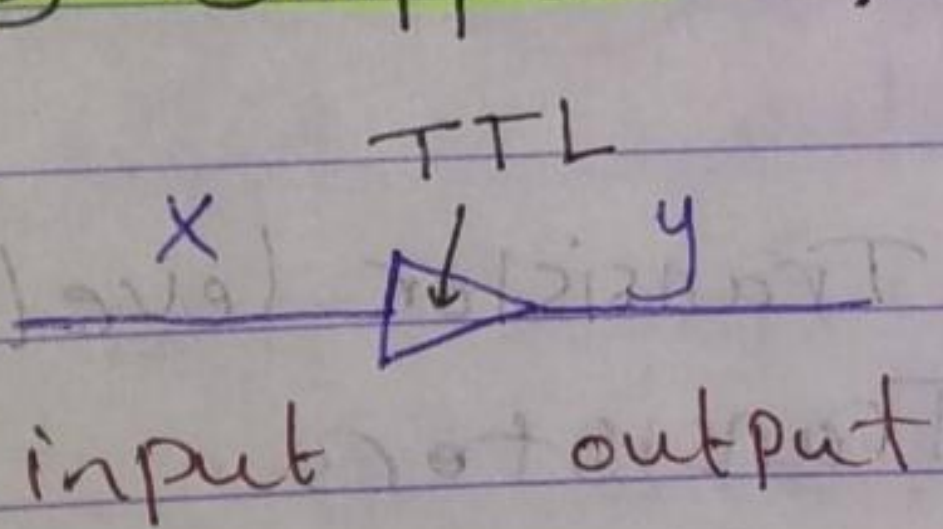 TTL
X y
input output